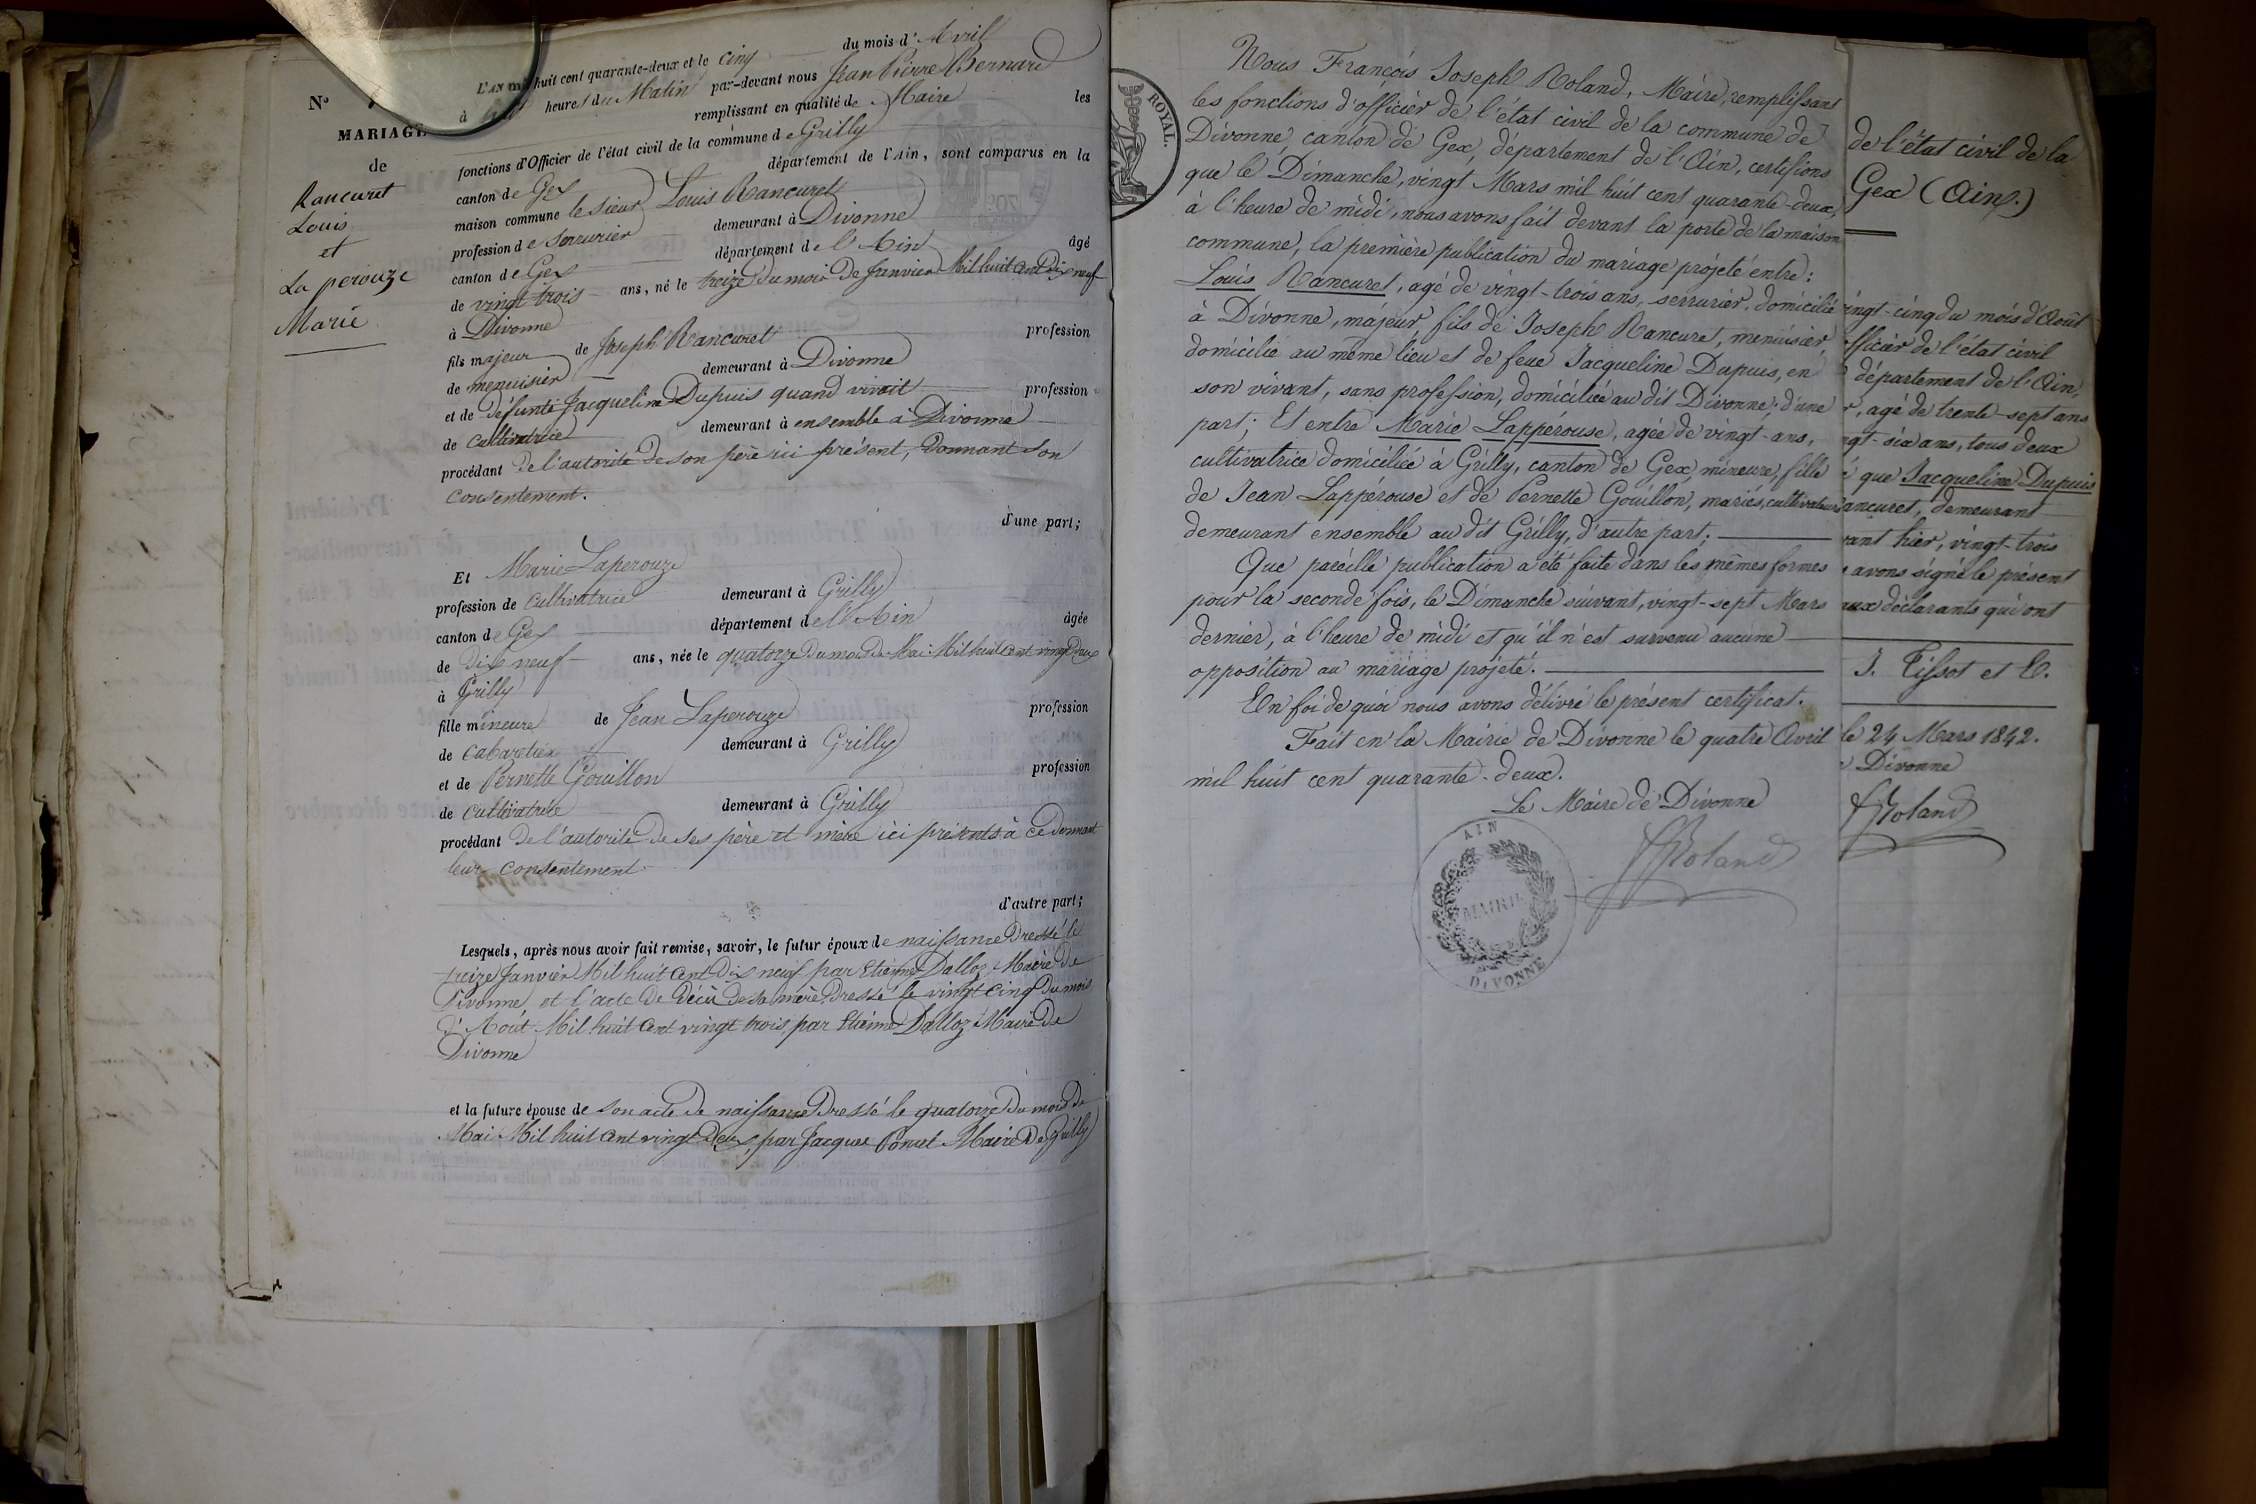 N°
MARIAGE
de
Rancuret
Louis
et
La perouze
Marie
L'AN mil huit cent quarante-deux et le cinq du mois d'Avril
à heures du Matin par-devant nous Jean Pierre Bernard
remplissant en qualité de Maire les
fonctions d'Officier de l'état civil de la commune de Grilly
canton de Gex département de l'Ain, sont comparus en la
maison commune le sieur Louis Rancuret
profession de serrurier demeurant à Divonne
canton de Gex département de l'Ain âgé
de vingt trois ans, né le treize du mois de Janvier Mil huit cent dix neuf
à Divonne
fils majeur de Joseph Rancuret profession
de menuisier demeurant à Divonne
et de défunte Jacqueline Dupuis quand vivait profession
de cultivatrice demeurant à ensemble à Divonne
procédant de l'autorité de son père ici présent, Donnant son
consentement.
d'une part;
Et Marie Laperouze
profession de cultivatrice demeurant à Grilly
canton de Gex département de l'Ain âgée
de dix neuf ans, née le quatorze du mois de Mai Mil huit cent vingt deux
à Grilly
fille mineure de Jean Laperouze profession
de cabaretier demeurant à Grilly
et de Pernette Gouillon profession
de cultivatrice demeurant à Grilly
procédant de l'autorité de ses père et mère ici présents à ce donnant
leur consentement
d'autre part;
Lesquels, après nous avoir fait remise, savoir, le futur époux de naissance Dressé le
treize Janvier Mil huit cent Dix neuf par Etienne Dalloz, Maire de
Divonne et l'acte de décès de sa mère Dressé le vingt cinq du mois
d'Août Mil huit cent vingt trois, par Etienne Dalloz Maire de
Divonne
et la future épouse de son acte de naissance Dressé le quatorze du mois de
Mai Mil huit cent vingt deux, par Jacques Poncet Maire de Grilly
ROYAL.
Nous François Joseph Roland, Maire, remplissant
les fonctions d'officier de l'état civil de la commune de
Divonne, canton de Gex, département de l'Ain, certifions
que le Dimanche, vingt Mars mil huit cent quarante-deux,
à l'heure de midi, nous avons fait devant la porte de la maison
commune, la première publication du mariage projeté entre:
Louis Rancuret, agé de vingt-trois ans, serrurier, domicilié
à Divonne, majeur, fils de Joseph Rancuret, menuisier
domicilié au même lieu et de feue Jacqueline Dupuis, en
son vivant, sans profession, domiciliée au dit Divonne; d'une
part; Et entre Marie Lappérouse, agée de vingt-ans,
cultivatrice domiciliée à Grilly, canton de Gex, mineure, fille
de Jean Lappérouse et de Pernette Gouillon, mariés, cultivateurs
demeurant ensemble au dit Grilly, d'autre part;
Que pareille publication a été faite dans les mêmes formes
pour la seconde fois, le Dimanche suivant, vingt-sept Mars
dernier, à l'heure de midi et qu'il n'est survenu aucune
opposition au mariage projeté.
En foi de quoi nous avons délivré le présent certificat.
Fait en la Mairie de Divonne le quatre Avril
mil huit cent quarante-deux.
Le Maire de Divonne
FJRoland
AIN
MAIRIE
DIVONNE
de l'état civil de la
Gex (Ain.)
vingt-cinq du mois d'Août
officier de l'état civil
département de l'Ain,
agé de trente-sept ans
six ans, tous deux
que Jacqueline Dupuis
Rancuret, demeurant
avant hier, vingt-trois
avons signé le présent
aux déclarants qui ont
J. Tissot et E.
le 24 Mars 1842.
Divonne
FJRoland